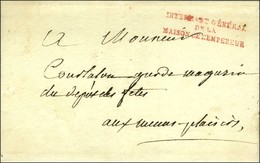 INTENDANT GÉNÉRAL
DE LA
MAISON DE L'EMPEREUR
A Monsieur
Constalon garde magasin
du dépôt des fêtes
aux menus-plaisirs,